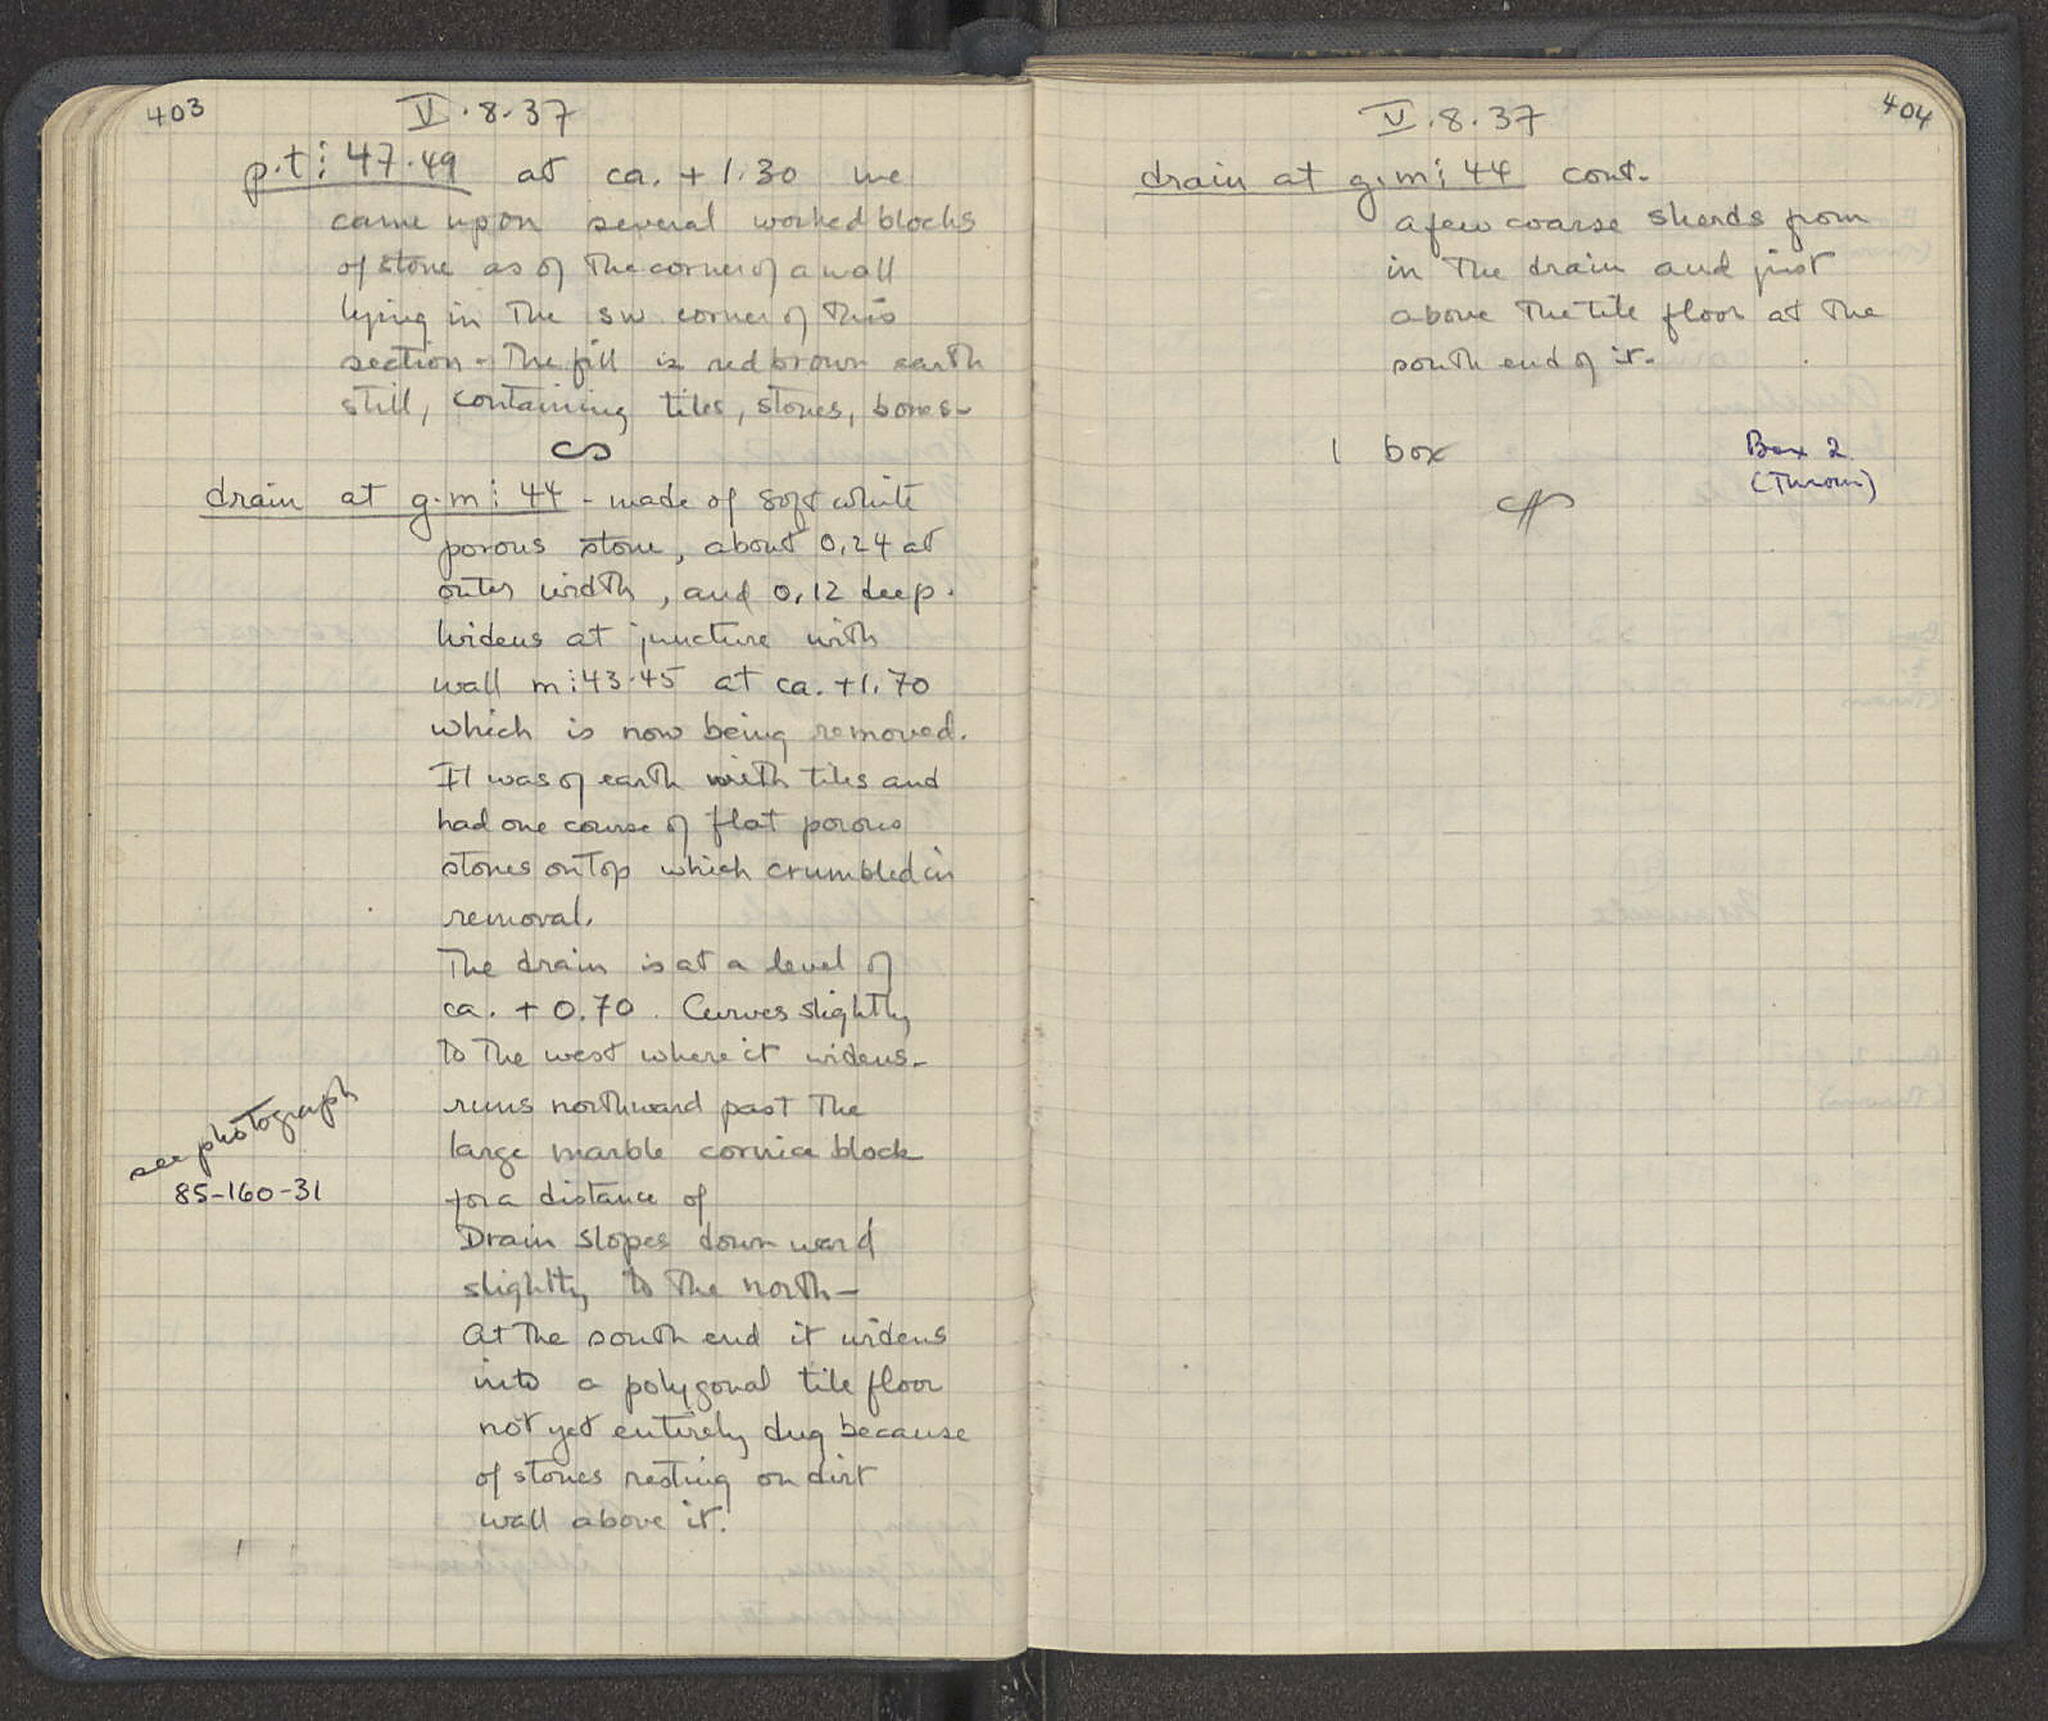 403
V.8.37
p.t: 47.49 at ca. +1.30 we
came upon several worked blocks
of stone as of the corner of a wall
lying in the sw corner of this
section - The fill is red brown earth
still, containing tiles, stones, bones-
drain at g.m: 44 - made of soft white
porous stone, about 0,24 at
outer width, and 0,12 deep.
Widens at juncture with
wall m:43.45 at ca. +1.70
which is now being removed.
It was of earth with tiles and
had one course of flat porous
stones on top which crumbled in
removal.
The drain is at a level of
ca. + 0.70. Curves slightly
to the west where it widens-
runs northward past the
large marble cornice block
for a distance of
Drain slopes downward
slightly to the north-
At the south end it widens
into a polygonal tile floor
not yet entirely dug because
of stones resting on dirt
wall above it.
see photograph
85-160-31
404
V.8.37
drain at g.m: 44 cont.
a few coarse sherds from
in the drain and just
above the tile floor at the
south end of it-
1 box
Box 2
(Thrown)